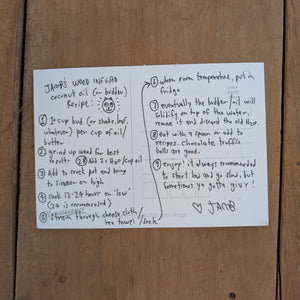 JACOB'S WEED INFUSED
coconut oil (or butter)
Recipe:
① 1 cup bud (or shake, leaf,
whatever) per cup of oil/
butter
② grind up weed for best
results 2B Add 2 c H2O/cup oil
③ Add to crock pot and bring
to simmer on high
④ cook 12-24 hours on 'low'
(24 is recommended)
⑤ strain through cheese cloth/
tea towel / sock
⑥ when room temperature, put in
fridge
⑦ eventually the butter/oil will
solidify on top of the water,
remove it and discard the old H2O.
⑧ eat with a spoon or add to
recipes. chocolate truffle
balls are good.
⑨ enjoy! it always recommended
to start low and go slow, but
sometimes ya gotta givr!
♡ JACOB